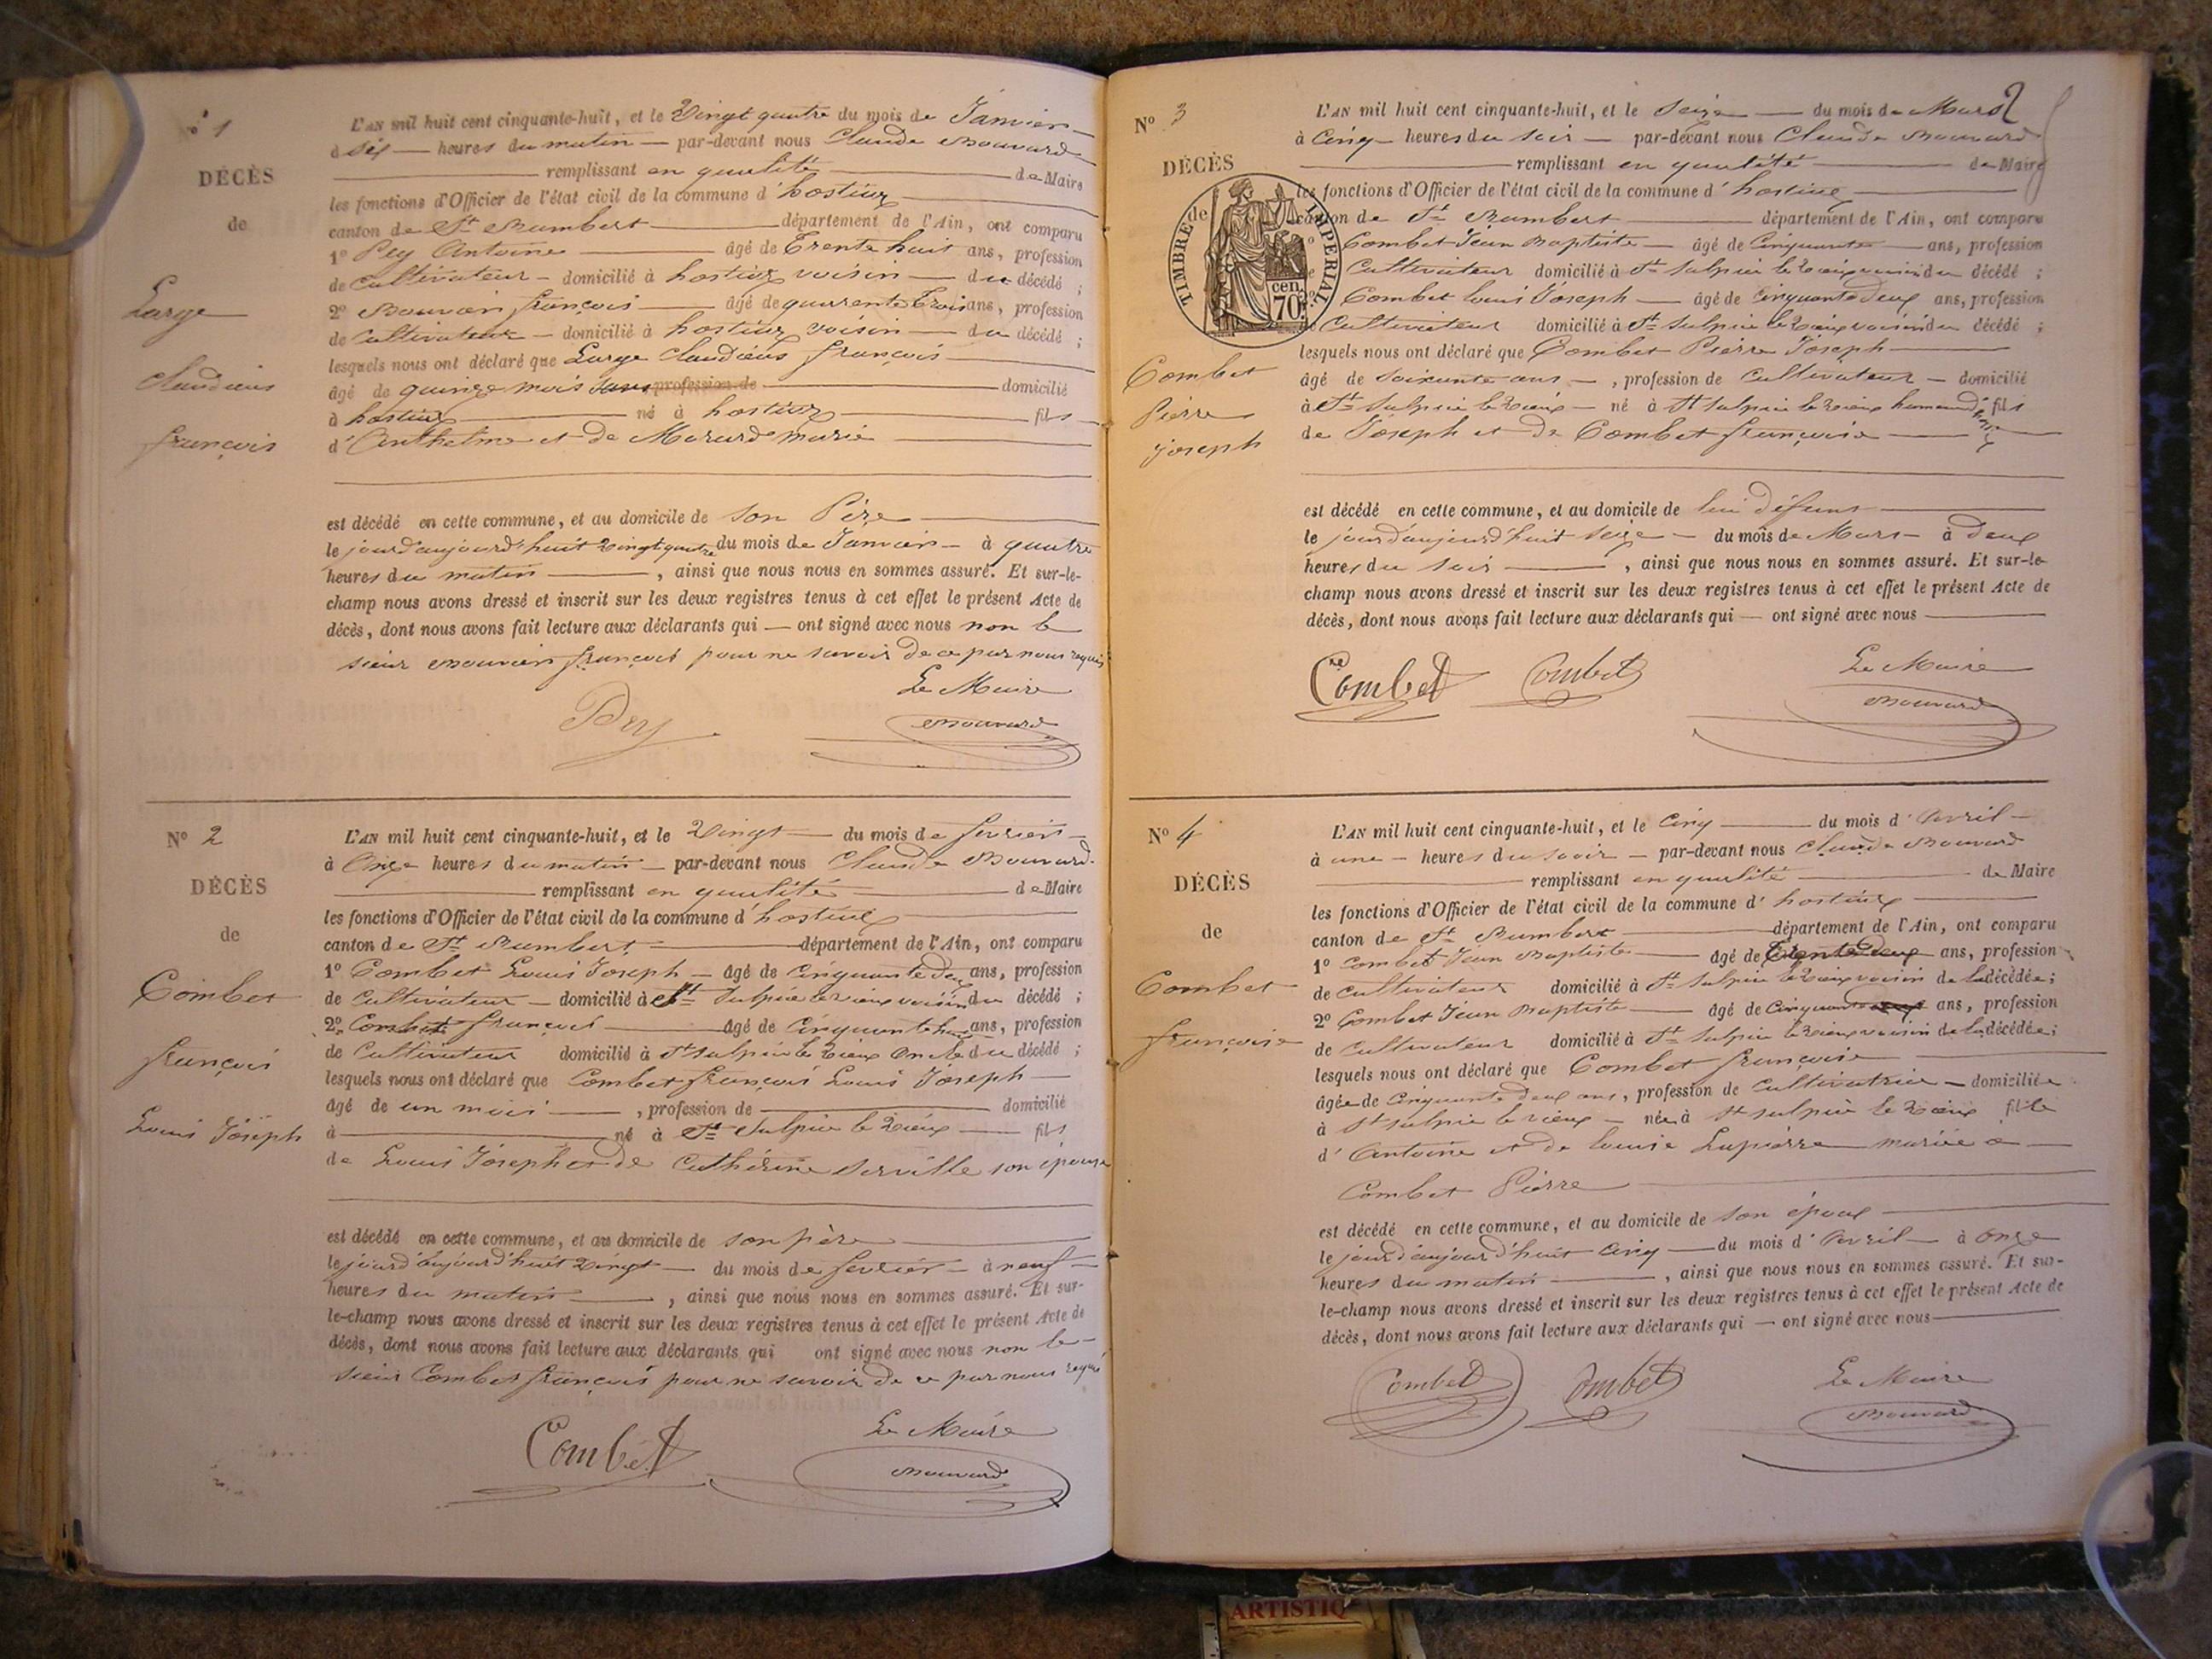 N° 1
DÉCÈS
de
Large
Claudius
françois
L'AN mil huit cent cinquante-huit, et le Vingt quatre du mois de Janvier
à six heures du matin par-devant nous Claude Bouvard
remplissant en qualité de Maire
les fonctions d'Officier de l'état civil de la commune d'hostiaz
canton de St Rambert département de l'Ain, ont comparu
1° Pey Antoine âgé de Trente huit ans, profession
de Cultivateur domicilié à hostiaz voisin du décédé ;
2° françois âgé de quarente trois ans, profession
de Cultivateur domicilié à hostiaz voisin du décédé ;
lesquels nous ont déclaré que Large Claudius françois
âgé de quinze mois sans profession de domicilié
à hostiaz né à hostiaz fils
d'Anthelme et de marie
est décédé en cette commune, et au domicile de son Père
le jourd'aujourd'huit vingt quatre du mois de Janvier à quatre
heures du matin , ainsi que nous nous en sommes assuré. Et sur-le-
champ nous avons dressé et inscrit sur les deux registres tenus à cet effet le présent Acte de
décès, dont nous avons fait lecture aux déclarants qui ont signé avec nous non le
sieur françois pour ne savoir de ce par nous requis
Pey
Le Maire
Bouvard
N° 2
DÉCÈS
de
Combet
françois
Louis Joseph
L'AN mil huit cent cinquante-huit, et le Vingt du mois de fevrier
à Onze heures du matin par-devant nous Claude Bouvard
remplissant en qualité de Maire
les fonctions d'Officier de l'état civil de la commune d'hostiaz
canton de St Rambert département de l'Ain, ont comparu
1° Combet Louis Joseph âgé de cinquante deux ans, profession
de Cultivateur domicilié à St Sulpice le vieux voisin du décédé ;
2° Combet françois âgé de cinquante huit ans, profession
de Cultivateur domicilié à St Sulpice le vieux oncle du décédé ;
lesquels nous ont déclaré que Combet françois Louis Joseph
âgé de un mois , profession de domicilié
à né à St Sulpice le vieux fils
de Louis Joseph et de Cathérine Serville son épouse
est décédé en cette commune, et au domicile de son père
le jourd'aujourd'huit vingt du mois de fevrier à neuf
heures du matin , ainsi que nous nous en sommes assuré. Et sur-
le-champ nous avons dressé et inscrit sur les deux registres tenus à cet effet le présent Acte de
décès, dont nous avons fait lecture aux déclarants qui ont signé avec nous non le
sieur Combet françois pour ne savoir de ce par nous requis
Combet
Le Maire
Bouvard
2
N° 3
DÉCÈS
de
TIMBRE IMPERIAL
cen.
70
Combet
Pierre
joseph
L'AN mil huit cent cinquante-huit, et le Seize du mois de Mars
à Cinq heures du soir par-devant nous Claude Bouvard
remplissant en qualité de Maire
les fonctions d'Officier de l'état civil de la commune d'hostiaz
canton de St Rambert département de l'Ain, ont comparu
Combet Jean Baptiste âgé de Cinquante ans, profession
Cultivateur domicilié à St Sulpice le vieux voisin du décédé ;
Combet Louis Joseph âgé de Cinquante deux ans, profession
Cultivateur domicilié à St Sulpice le vieux voisin du décédé ;
lesquels nous ont déclaré que Combet Pierre Joseph
âgé de Soixante ans , profession de Cultivateur domicilié
à St Sulpice le vieux né à St Sulpice le vieux fils
de Joseph et de Combet françoise
est décédé en cette commune, et au domicile de lui défunt
le jourd'aujourd'huit seize du mois de Mars à deux
heures du soir , ainsi que nous nous en sommes assuré. Et sur-le-
champ nous avons dressé et inscrit sur les deux registres tenus à cet effet le présent Acte de
décès, dont nous avons fait lecture aux déclarants qui ont signé avec nous
Combet Combet
Le Maire
Bouvard
N° 4
DÉCÈS
de
Combet
françoise
L'AN mil huit cent cinquante-huit, et le Cinq du mois d'Avril
à une heures du soir par-devant nous Claude Bouvard
remplissant en qualité de Maire
les fonctions d'Officier de l'état civil de la commune d'hostiaz
canton de St Rambert département de l'Ain, ont comparu
1° Combet Jean Baptiste âgé de trente deux ans, profession
de Cultivateur domicilié à St Sulpice le vieux voisin de la décédée ;
2° Combet Jean Baptiste âgé de Cinquante ans, profession
de Cultivateur domicilié à St Sulpice le vieux voisin de la décédée ;
lesquels nous ont déclaré que Combet françoise
âgée de Cinquante deux ans, profession de Cultivatrice domiciliée
à St Sulpice le vieux née à St Sulpice le vieux fille
d'Antoine et de Louise Lapierre mariée à
Combet Pierre
est décédé en cette commune, et au domicile de son époux
le jourd'aujourd'huit Cinq du mois d'Avril à Onze
heures du matin , ainsi que nous nous en sommes assuré. Et sur-
le-champ nous avons dressé et inscrit sur les deux registres tenus à cet effet le présent Acte de
décès, dont nous avons fait lecture aux déclarants qui ont signé avec nous
Combet Combet
Le Maire
Bouvard
ARTISTIQ